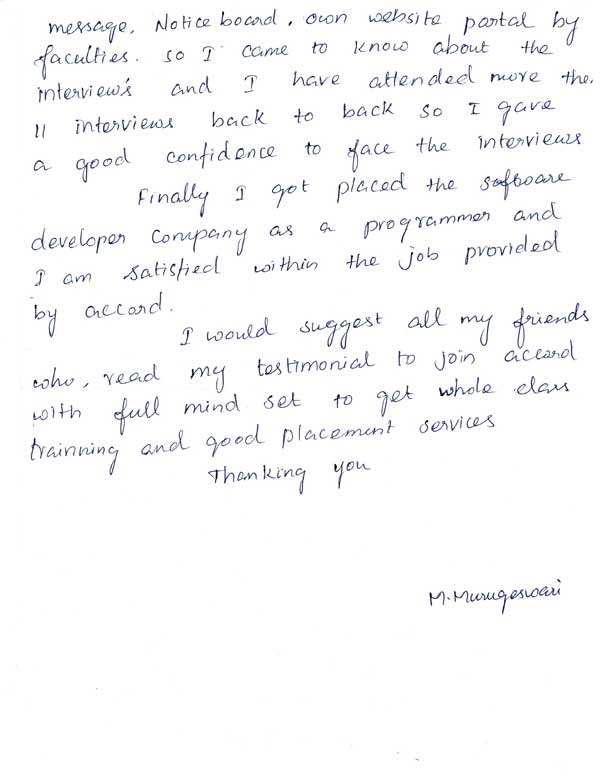 message, Notice board, own website portal by
faculties. so I came to know about the
interview's and I have attended more the.
11 interviews back to back so I gave
a good confidence to face the interviews
Finally I got placed the software
developer company as a programmer and
I am satisfied within the job provided
by accord.
I would suggest all my friends
who, read my testimonial to join accord
with full mind set to get whole class
trainning and good placement services
Thanking you
M. Murugeswari